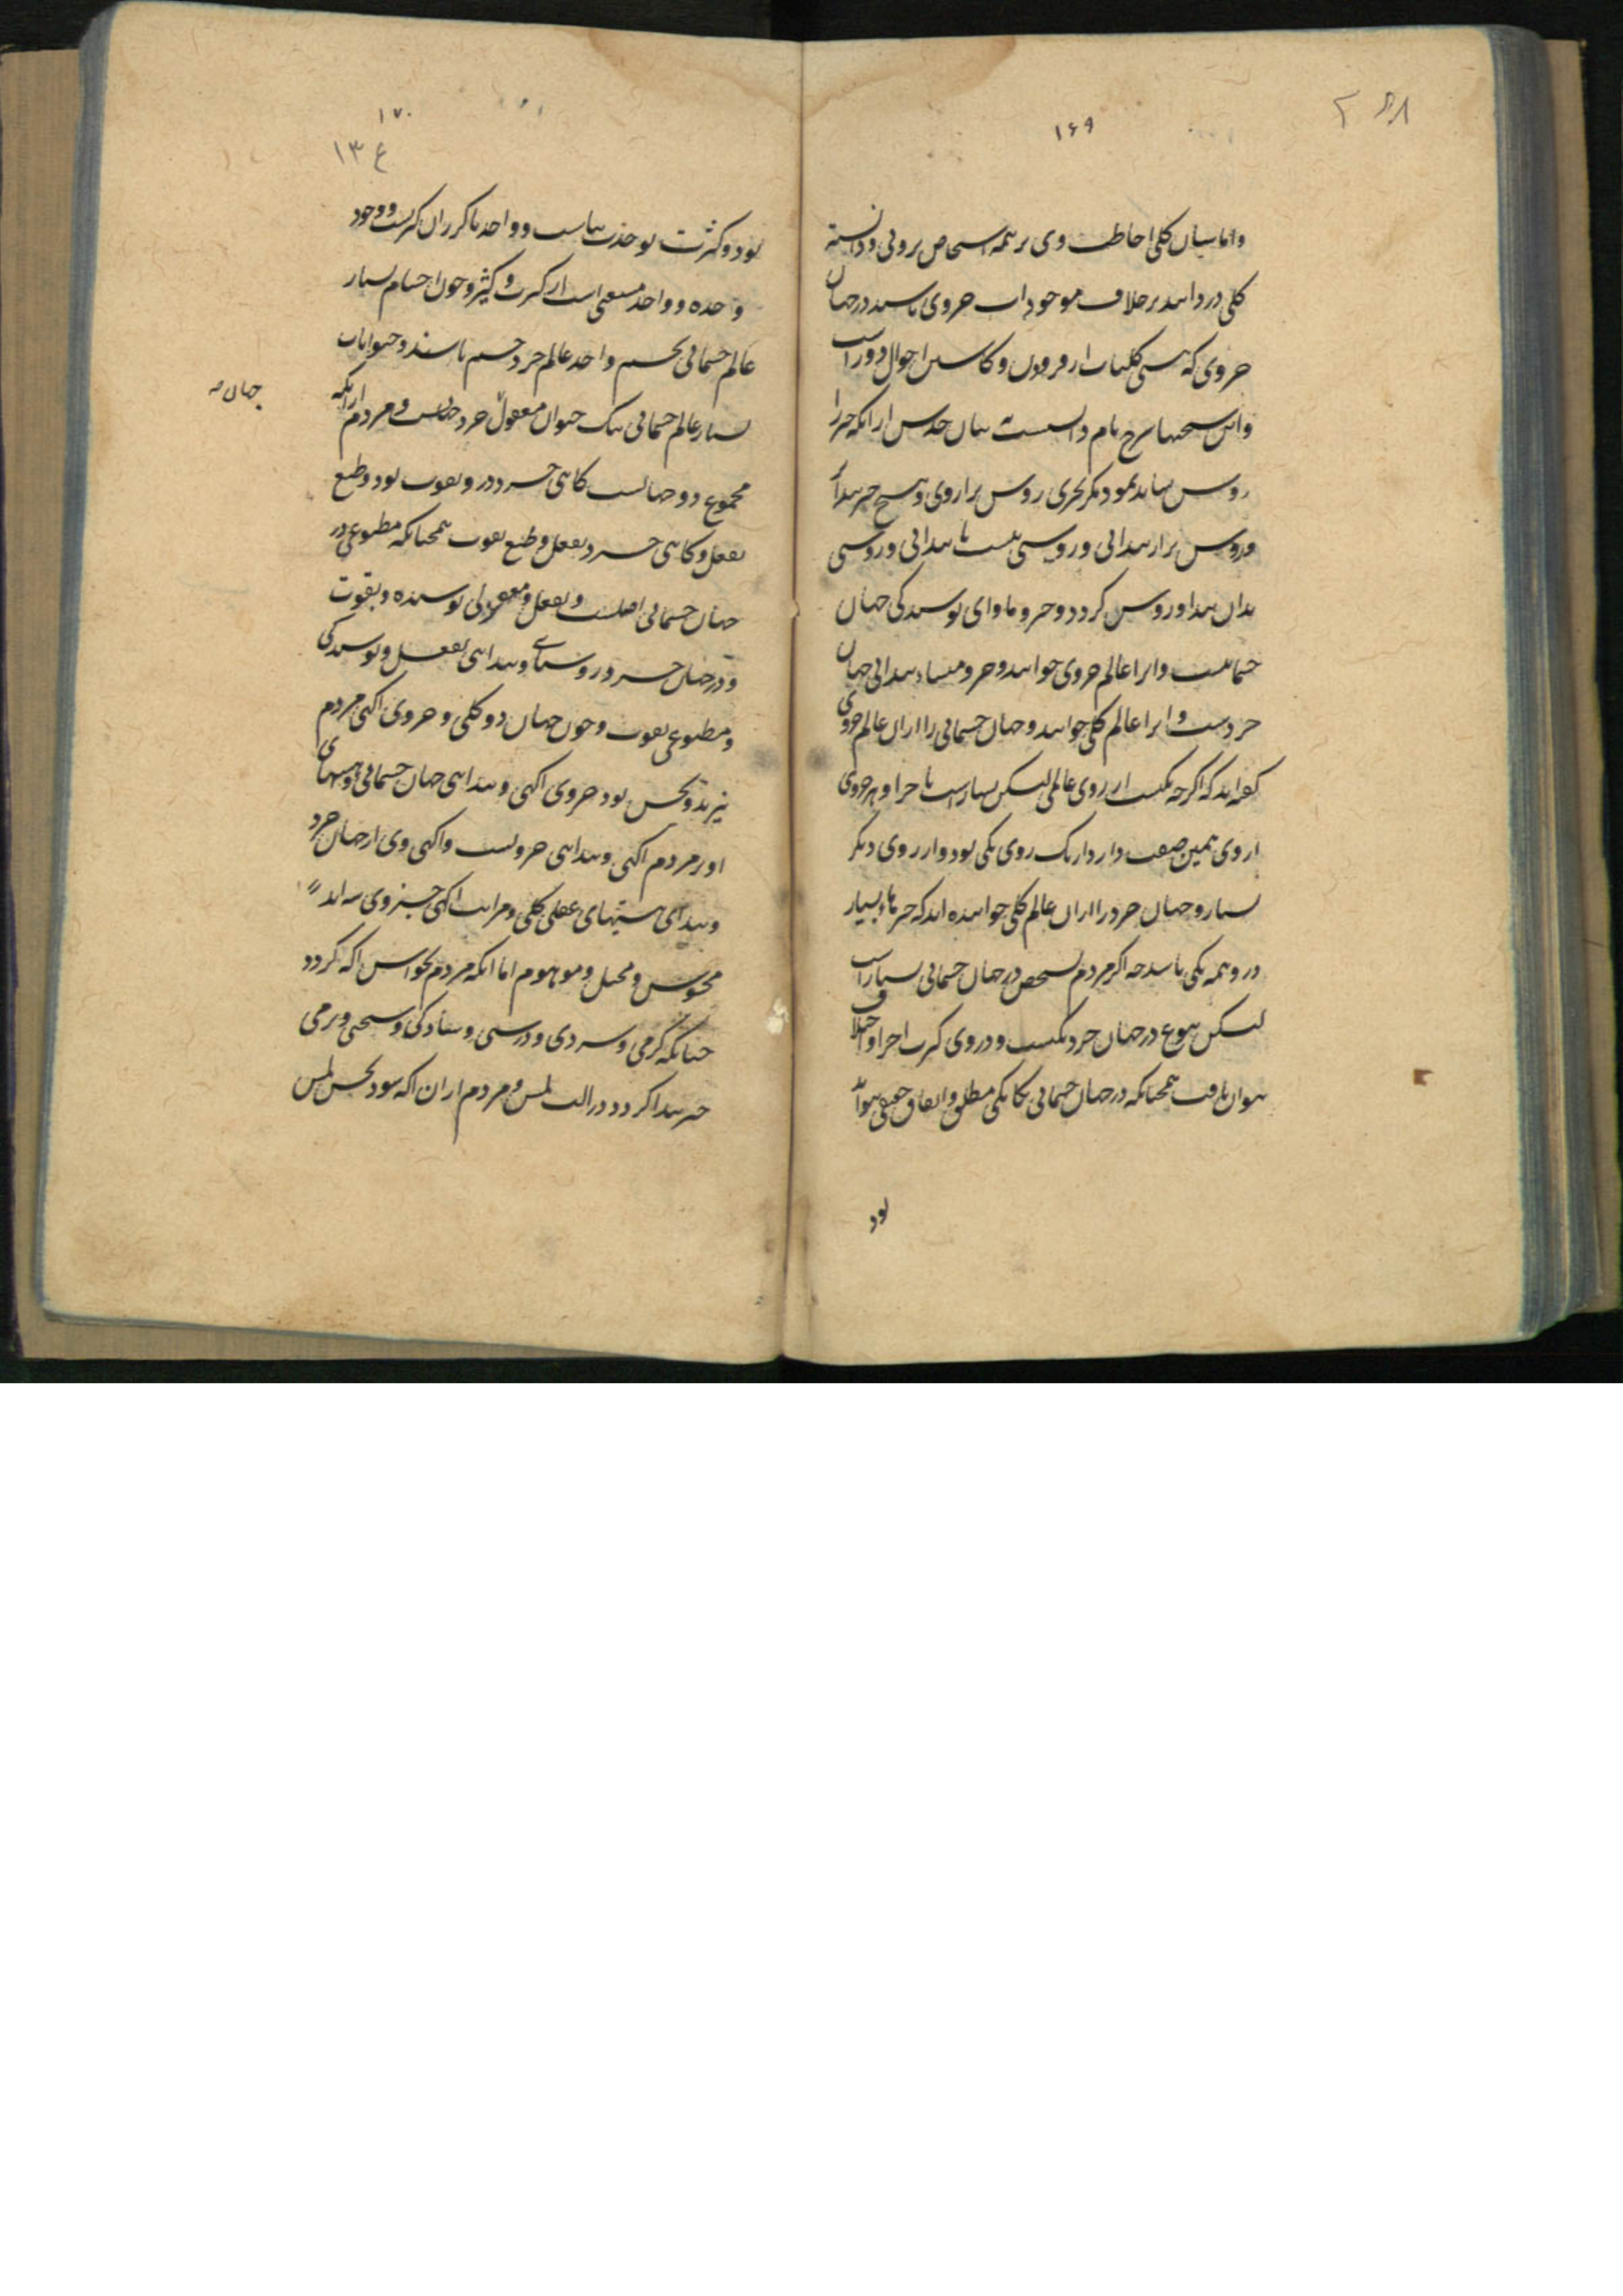 ۱۶۹
واما بیان کلی احاطت وی بر همه اشخاص برونی ودانسته
کلی در دانند بر خلاف موجودات جزوی باشند در جهان
جزوی که هستی کلیات از فزودن و کاستن احوال دور است
واین سخنها شرح نام دانست نه بیان حدش از آنکه خرد را
روشن نباید نمود مگر بخردی روشن تر از وی وهیچ چیز پیدا
وروشن تر از پیدائی وروشنی نیست تا پیدائی وروشنی
بدان پیدا وروشن گردد وحیز وماوای پوشیدگی جهان
جسمانیست وانرا عالم جزوی خوانند وحیز ومنشاء پیدائی جهان
خردست وانرا عالم کلی خوانند وجهان جسمانی را از آن عالم جزوی
گفته‌اند که اگرچه یکیست از روی عالمی لیکن بسیار است با جزا وهر جزوی
از وی همین صفت دارد از یک روی یکی بود واز روی دیگر
بسیار وجهان خرد را از آن عالم کلی خوانده‌اند که چیزهاء بسیار
در و همه یکی باشد چه اگر مردم بشخص در جهان جسمانی بسیار است
لیکن بنوع در جهان خرد یکیست و در وی کثرت اجزا واختلاف
نتوان یافت همچنانکه در جهان جسمانی یگانگی مطلق واتفاق حقیقی نتواند
بود
۱۷۰
۱۳ع
بود وکثرت بوحدت بپاست و واحد با کثر ز آن کثرت و وجود
وحده و واحد مستغنی است از کثرت وکثیر وچون اجسام بسیار
عالم جسمانی بجسم واحد عالم خرد جسم باشند وحیوانات
بسیار عالم جسمانی بیک حیوان معقول خرد حیوان و مردم از آنکه
جهان صح
مجموع دو جهانست گاهی خرد در و بقوت بود وطبع
بفعل وگاهی خرد بفعل وطبع بقوت همچنانکه مطبوعی در
جهان جسمانی اصلست وبفعل ومعقولی پوشیده وبقوت
ودر جهان خرد روشنائی وپیدائی بفعل وپوشیدگی
ومطبوعی بقوت وچون جهان دو کلی وجزوی آگهی مردم
نیز بدو بخش بود جزوی آگهی وپیدائی جهان جسمانی وهستیهای
او در مردم آگهی وپیدائی جزویست وآگهی وی از جهان خرد
وپیدای هستیهای عقلی کلی ومراتب آگهی جزوی سه‌اند
محسوس ومخیل وموهوم اما آنکه مردم بحواس آگه گردد
چنانکه گرمی وسردی ودرشتی وسادگی وسختی ونرمی
چیز پیدا گردد در آلت لمس ومردم از آن آگه شود بحس لمس